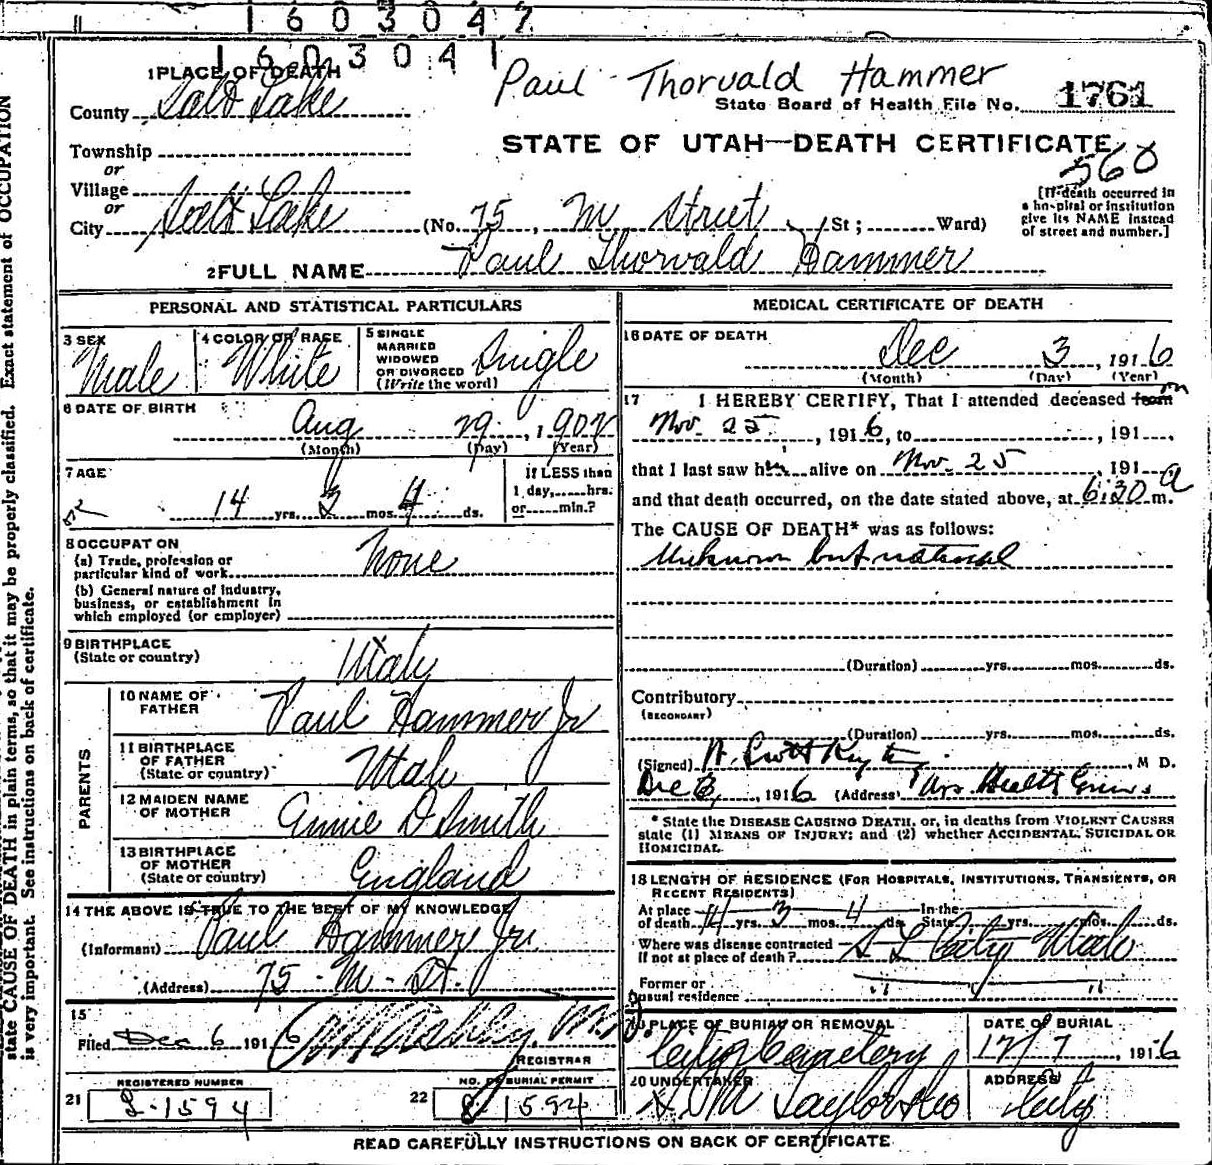 1603047
1603041
Paul Thorvald Hammer
State Board of Health File No. 1761
1 PLACE OF DEATH
County Salt Lake
STATE OF UTAH—DEATH CERTIFICATE
Township
or
Village
or
City Salt Lake (No. 75, M Street St; Ward)
560
[If death occurred in a hospital or institution give its NAME instead of street and number.]
2 FULL NAME Paul Thorvald Hammer
PERSONAL AND STATISTICAL PARTICULARS
3 SEX Male
4 COLOR OR RACE White
5 SINGLE MARRIED WIDOWED OR DIVORCED (Write the word) Single
6 DATE OF BIRTH Aug 29, 1902
(Month) (Day) (Year)
7 AGE 14 yrs. 3 mos. 4 ds.
If LESS than 1 day, hrs. or min.?
8 OCCUPATION
(a) Trade, profession or particular kind of work None
(b) General nature of industry, business, or establishment in which employed (or employer)
9 BIRTHPLACE (State or country) Utah
PARENTS
10 NAME OF FATHER Paul Hammer Jr
11 BIRTHPLACE OF FATHER (State or country) Utah
12 MAIDEN NAME OF MOTHER Annie D Smith
13 BIRTHPLACE OF MOTHER (State or country) England
14 THE ABOVE IS TRUE TO THE BEST OF MY KNOWLEDGE
(Informant) Paul Hammer Jr.
(Address) 75 - M - St.
15
Filed Dec 6 1916 M.D.
REGISTRAR
REGISTERED NUMBER
21 L-1594
NO. OF BURIAL PERMIT
22 1594
MEDICAL CERTIFICATE OF DEATH
16 DATE OF DEATH
Dec 3, 1916
(Month) (Day) (Year)
17 I HEREBY CERTIFY, That I attended deceased from
Nov. 25, 1916, to , 191
that I last saw him alive on Nov. 25, 191
and that death occurred, on the date stated above, at 6:30 a m.
The CAUSE OF DEATH* was as follows:
Unknown but natural
(Duration) yrs. mos. ds.
Contributory
(SECONDARY)
(Duration) yrs. mos. ds.
(Signed) , M D.
Dec 3, 1916 (Address)
* State the DISEASE CAUSING DEATH, or, in deaths from VIOLENT CAUSES state (1) MEANS OF INJURY; and (2) whether ACCIDENTAL, SUICIDAL OR HOMICIDAL.
18 LENGTH OF RESIDENCE (FOR HOSPITALS, INSTITUTIONS, TRANSIENTS, OR RECENT RESIDENTS)
At place of death 14 yrs. 3 mos. 4 ds. In the State yrs. mos. ds.
Where was disease contracted if not at place of death? S L City Utah
Former or usual residence " "
19 PLACE OF BURIAL OR REMOVAL City Cemetery
DATE OF BURIAL 12/7, 1916
20 UNDERTAKER S M Taylor & Co
ADDRESS City
READ CAREFULLY INSTRUCTIONS ON BACK OF CERTIFICATE
state CAUSE OF DEATH in plain terms, so that it may be properly classified. Exact statement of OCCUPATION
is very important. See instructions on back of certificate.